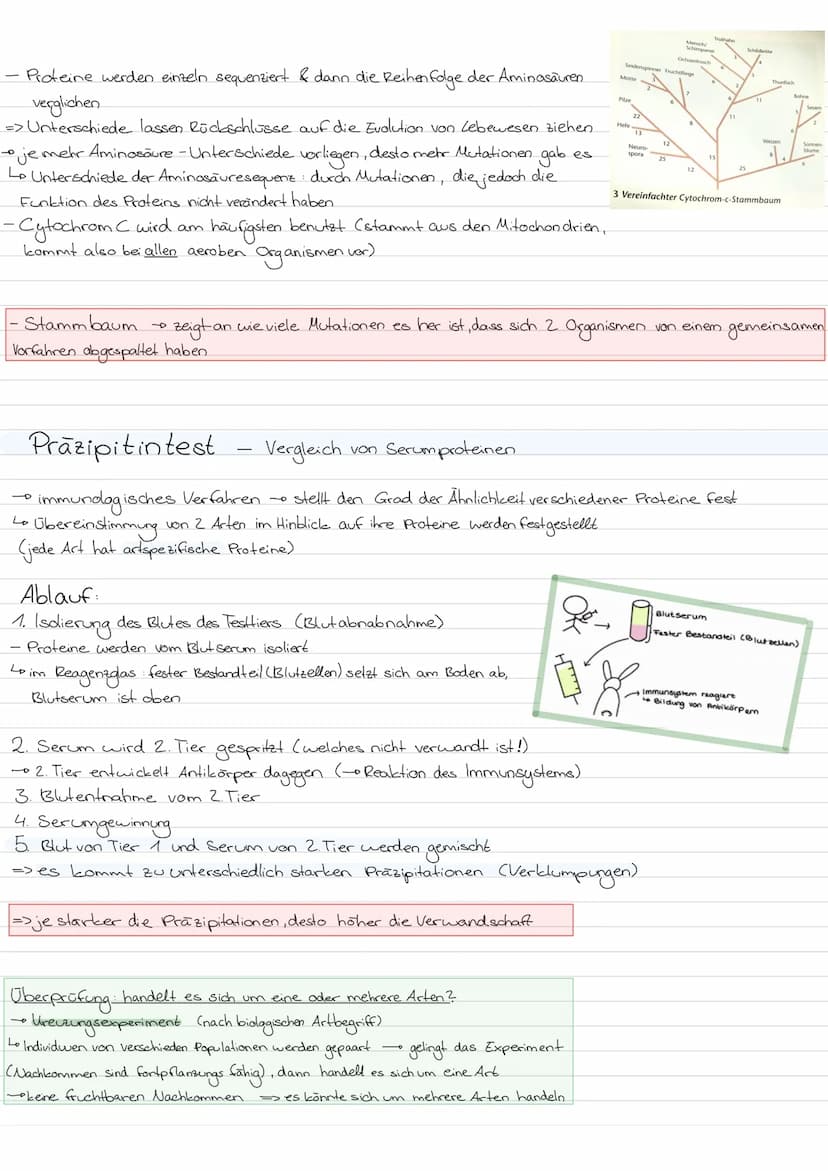 - Proteine werden einzeln sequenziert & dann die Reihenfolge der Aminosäuren
verglichen
=> Unterschiede lassen Rückschlüsse auf die Evolution von Lebewesen ziehen
→ je mehr Aminosäure-Unterschiede vorliegen, desto mehr Mutationen gab es
↳ Unterschiede der Aminosäuresequenz: durch Mutationen, die jedoch die
Funktion des Proteins nicht verändert haben
- Cytochrom C wird am häufigsten benutzt (stammt aus den Mitochondrien,
kommt also bei allen aeroben Organismen vor)
Truthahn
Mensch/
Schimpanse
Schildkröte
Ochsenfrosch
Seidenspinner
Fruchtfliege
Motte
Thunfisch
Bohne
Sesam
Pilze
Hefe
Neuro-
spora
Weizen
Sonnen-
blume
22
13
12
25
12
15
25
11
11
3 Vereinfachter Cytochrom-c-Stammbaum
- Stammbaum → zeigt an wie viele Mutationen es her ist, dass sich 2 Organismen von einem gemeinsamen
Vorfahren abgespaltet haben
Präzipitintest - Vergleich von Serumproteinen
→ immunologisches Verfahren → stellt den Grad der Ähnlichkeit verschiedener Proteine fest
↳ Übereinstimmung von 2 Arten im Hinblick auf ihre Proteine werden festgestellt
(jede Art hat artspezifische Proteine)
Ablauf:
1. Isolierung des Blutes des Testtiers (Blutabnabnahme)
- Proteine werden vom Blutserum isoliert
↳ im Reagenzglas: fester Bestandteil (Blutzellen) setzt sich am Boden ab,
Blutserum ist oben
Blutserum
Fester Bestandteil (Blutzellen)
Immunsystem reagiert
↳ Bildung von Antikörpern
2. Serum wird 2. Tier gespritzt (welches nicht verwandt ist!)
→ 2. Tier entwickelt Antikörper dagegen (→ Reaktion des Immunsystems)
3. Blutentnahme vom 2. Tier
4. Serumgewinnung
5. Blut von Tier 1 und Serum von 2 Tier werden gemischt
=> es kommt zu unterschiedlich starken Präzipitationen (Verklumpungen)
=> je starker die Präzipitationen, desto höher die Verwandschaft
Überprüfung: handelt es sich um eine oder mehrere Arten?
→ Kreuzungsexperiment (nach biologischen Artbegriff)
↳ Individuen von verschieden Populationen werden gepaart → gelingt das Experiment
(Nachkommen sind fortpflanzungs fähig), dann handelt es sich um eine Art
→ keine fruchtbaren Nachkommen => es könnte sich um mehrere Arten handeln